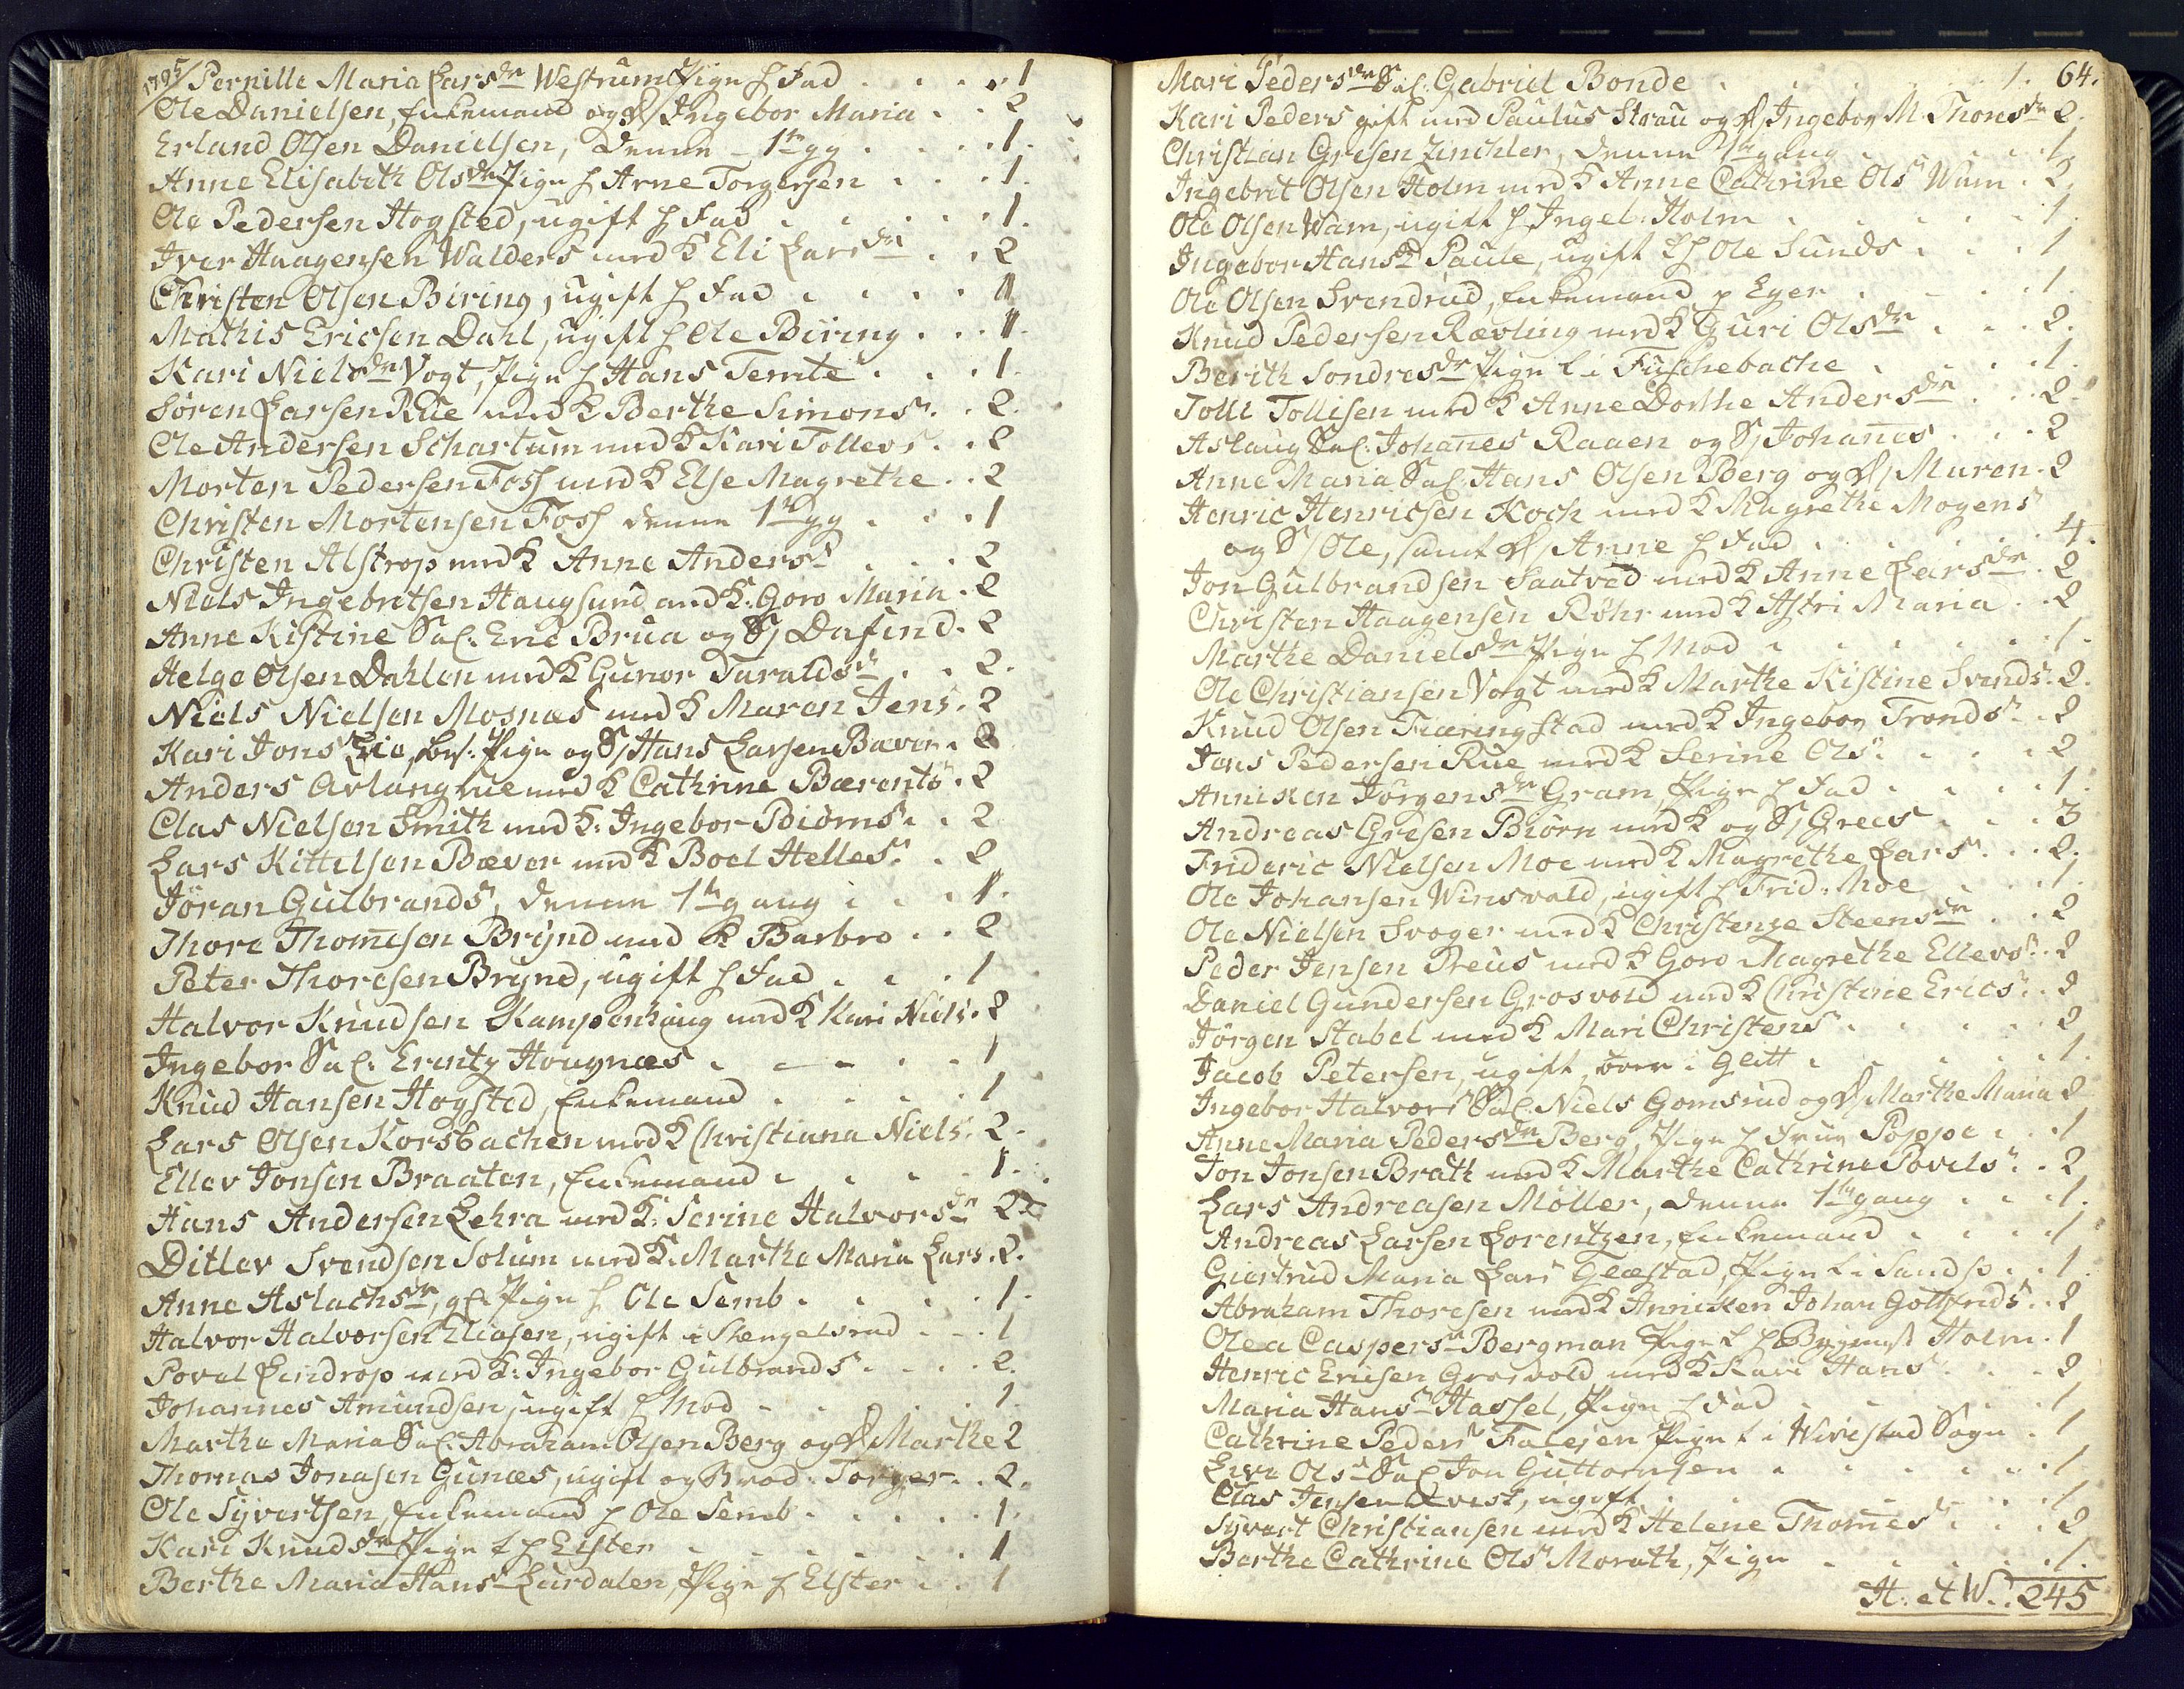 1795/ Pernille Maria Larsdr Westrum Pige h Fad . . . 1
Ole Danielsen, Enkemand og D/ Ingebor Maria . . 2
Erland Olsen Danielsen, denne 1te gg . . . . 1.
Anne Elisabeth Olsdr Pige h Arne Torgersen . . . 1.
Ole Pedersen Hogsted, ugift h Fad . . . . . 1.
Iver Haagensen Walders med K Eli Larsdr . . 2
Christen Olsen Biring, ugift h Fad . . . . 1
Mathis Ericsen Dahl, ugift h Ole Biring . . . 1.
Kari Nielsdr Vogt, Pige h Hans Temte . . . 1.
Søren Larsen Rue med K Berthe Simons . . 2.
Ole Andersen Schartum med K Kari Tollevs . . 2
Morten Pedersen Foss med K Else Magrethe . . 2
Christen Mortensen Foss denne 1te gg . . . 1
Christen Alstrop med K Anne Anders . . . 2
Niels Ingebritsen Haugsund med K: Goro Maria . 2
Anne Kistine Sal. Eric Brua og S/ Dafind . 2
Helge Olsen Dahlen med K Gunor Taralds . . 2.
Niels Nielsen Mosnæs med K Maren Jens . 2
Kari Jons Lie, Pige og S/ Hans Larsen Bæver . 2
Anders Avlangrue med K Cathrine Bærents . 2
Clas Nielsen Smith med K: Ingebor Biørns . . 2
Lars Kittilsen Bæver med K Boel Helles . . 2
Jøran Gulbrands, denne 1te gang . . . 1.
Thore Thomesen Brynd med K Barbro . . 2
Peter Thoresen Brynd, ugift h Fad . . . 1
Halvor Knudsen Kampenhaug med K Kari Niels . 2
Ingebor Sal. Erentz Hougnæs . . . . . 1
Knud Hansen Hogsted, Enkemand . . . . 1
Lars Olsen Korsbachen med K Christiana Niels . 2.
Ellev Jonsen Braaten, Enkemand . . . . 1.
Hans Andersen Lehra med K: Serine Halvorsdr 2
Ditlev Svendsen Solum med K. Marthe Maria Lars . 2.
Anne Aslachsdr, Pige h Ole Semb . . . . 1.
Halvor Halvorsen Eliasen, ugift i Stengelsrud . . . 1
Povel Lindrop med K: Ingebor Gulbrands . . . . 2.
Johannes Amundsen, ugift h Mod . . . . . 1.
Marthe Maria Sal. Abraham Olsen Berg og D/ Marthe 2
Thomas Jonasen Gunæs, ugift og Brod. Torger . . 2.
Ole Syvertsen, Enkemand h Ole Semb . . . . . 1.
Kari Knudsdr Pige t h Elster . . . . . . 1
Berthe Maria Hans Lurdalen, Pige h Elster . . 1
64.
Mari Pedersdr Sal. Gabriel Bonde . . . . . . 1.
Kari Peders gift med Paulus Strøm og D/ Ingebor M. Thoresdr 2.
Christian Gresen Zinchler, denne 1te gang . . . . . 1.
Ingebrit Olsen Holm med K Anne Cathrine Ols Wam . 2.
Ole Olsen Wam, ugift h Ingeb: Holm . . . . . 1.
Ingebor Hansdr Paule, ugift t h Ole Sunds . . . 1
Ole Olsen Svendrud, Enkemand p Eger . . . . 1.
Knud Pedersen Rævling med K Guri Olsdr . . . 2.
Berith Sondresdr Pige t i Fuschebache . . . . . 1.
Tolle Tollisen med K Anne Dorthe Andersdr . . . 2.
Aslaug Sal. Johannes Raaen og S/ Johannes . . . 2
Anne Maria Sal. Hans Olsen Berg og D/ Maren . 2
Henric Henricsen Koch med K Magrethe Mogens
og S/ Ole, samt D/ Anne h Fad . . . . . . 4.
Jon Gulbrandsen Saatved med K Anne Larsdr . 2
Christen Haagensen Røhr med K Astri Maria . . 2
Marthe Danielsdr Pige h Mod . . . . . . 1.
Ole Christiansen Vogt med K Marthe Kistine Svends . 2.
Knud Olsen Fiæringstad med K Ingebor Tronds . . 2
Jens Pedersen Rue med K Serine Ols . . . . 2
Anniken Jørgensdr Gram, Pige h Fad . . . . 1.
Andreas Gresen Biørn med K og S/ Grees . . . 3
Frideric Nielsen Moe med K Magrethe Lars . . . 2.
Ole Johansen Winsvold, ugift h Frid: Moe . . . 1.
Ole Nielsen Svoger med K Christenze Steensdr . . . 2
Peder Jensen Preus med K Goro Magrethe Ellevs . . 2
Daniel Gundersen Grosvold med K Christine Erics . . 2
Jørgen Stabel med K Mari Christens . . . . . 2
Jacob Petersen, ugift, i Glitt . . . . . . 1.
Ingebor Halvors Sal. Niels Gomsrud og D/ Marthe Maria 2
Anne Maria Pedersdr Berg, Pige h Frue Poppe . . . 1
Jon Jonsen Brath med K Marthe Cathrine Povels . . 2
Lars Andreasen Møller, denne 1te gang . . . 1.
Andreas Larsen Lorentzen, Enkemand . . . . 1
Giertrud Maria Lars Glæstad, Pige t i Sandsv . . 1.
Abraham Thoresen med K Anniken Johan Gottfrids . . 2
Olea Caspers Bergman Pige t h Holm . 1
Henric Ericsen Grosvold med K Kari Hans . . . 2
Maria Hans Hassel, Pige h Fad . . . . . . 1
Cathrine Peders Falesen Pige t i Wivestad Sogn . 1
Live Ols Sal. Jon Guttormsen . . . . . . 1.
Clas Jensen Qvist, ugift . . . . . . . 1.
Syvert Christiansen med K Helene Thomes . . . 2
Berthe Cathrine Ols Morath, Pige . . . . . 1.
H. et W.: 245